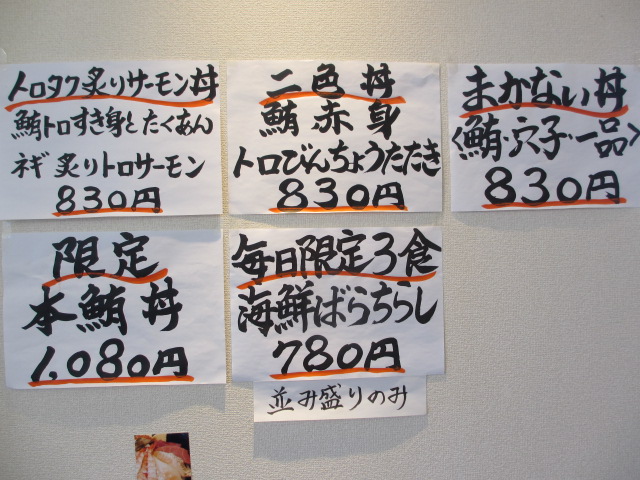 トロタク炙りサーモン丼
鮪トロすき身とたくあん
ネギ 炙りトロサーモン
830円
二色丼
鮪赤身
トロびんちょうたたき
830円
まかない丼
〈鮪・穴子・一品〉
830円
限定
本鮪丼
1,080円
毎日限定3食
海鮮ばらちらし
780円
並み盛りのみ